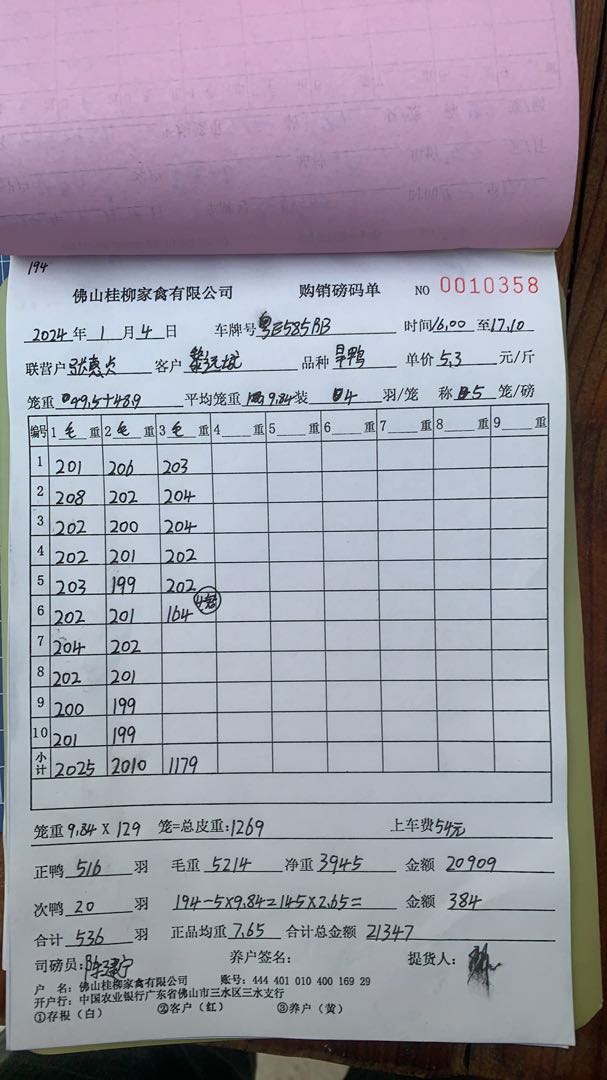 194
佛山桂柳家禽有限公司 购销磅码单 NO 0010358
2024年1月4日 车牌号粤E585BB 时间16.00至17.10
联营户 张惠贞 客户 品种 旱鸭 单价5.3元/斤
笼重 99.5+48.9 平均笼重 9.84 装 4 羽/笼 称 5 笼/磅
编号 1毛重 2毛重 3毛重 4重 5重 6重 7重 8重 9重
1 201 206 203
2 208 202 204
3 202 200 204
4 202 201 202
5 203 199 202
6 202 201 164 4笼
7 204 202
8 202 201
9 200 199
10 201 199
小计 2025 2010 1179
笼重9.84×129 笼=总皮重:1269 上车费54元
正鸭 516 羽 毛重 5214 净重 3945 金额 20909
次鸭 20 羽 194-5×9.84=145×2.65= 金额 384
合计 536 羽 正品均重 7.65 合计总金额 21347
司磅员: 陈建宁 养户签名: 提货人:
户 名: 佛山桂柳家禽有限公司 账号: 444 401 010 400 169 29
开户行: 中国农业银行广东省佛山市三水区三水支行
①存根(白) ②客户(红) ③养户(黄)